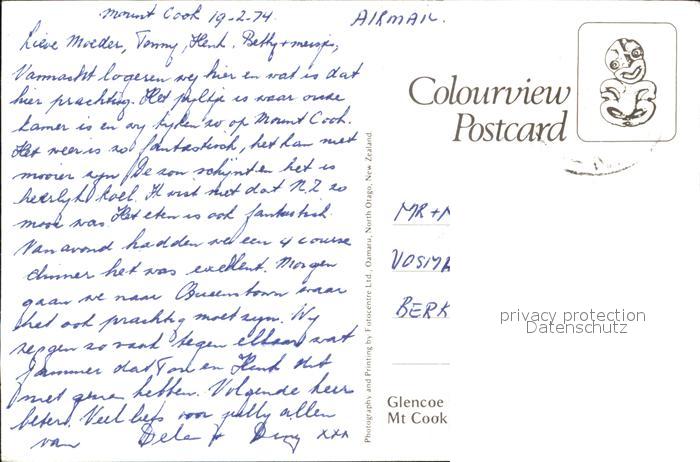 Mount Cook 19-2-74.
AIRMAIL.
Lieve Moeder, Tommy, Henk, Betty + meisjes,
Vannacht logeren wij hier en wat is dat
hier prachtig. Het pijltje is waar onze
kamer is en wij kijken zo op Mount Cook.
Het weer is zo fantastisch, het kan niet
mooier zijn. De zon schijnt en het is
heerlijk koel. Ik wist niet dat N.Z. zo
mooi was. Het eten is ook fantastisch.
Van avond hadden we een 4 course
dinner het was excellent. Morgen
gaan we naar Queenstown waar
het ook prachtig moet zijn. Wij
zeggen zo vaak tegen elkaar wat
jammer dat Ton en Henk dit
niet gezien hebben. Volgende keer
beter. Veel liefs voor jullie allen
van xxx
Colourview
Postcard
Photography and Printing by Fotocentre Ltd., Oamaru, North Otago, New Zealand.
MR + M
VOSMA
BERK
privacy protection
Datenschutz
Glencoe
Mt Cook